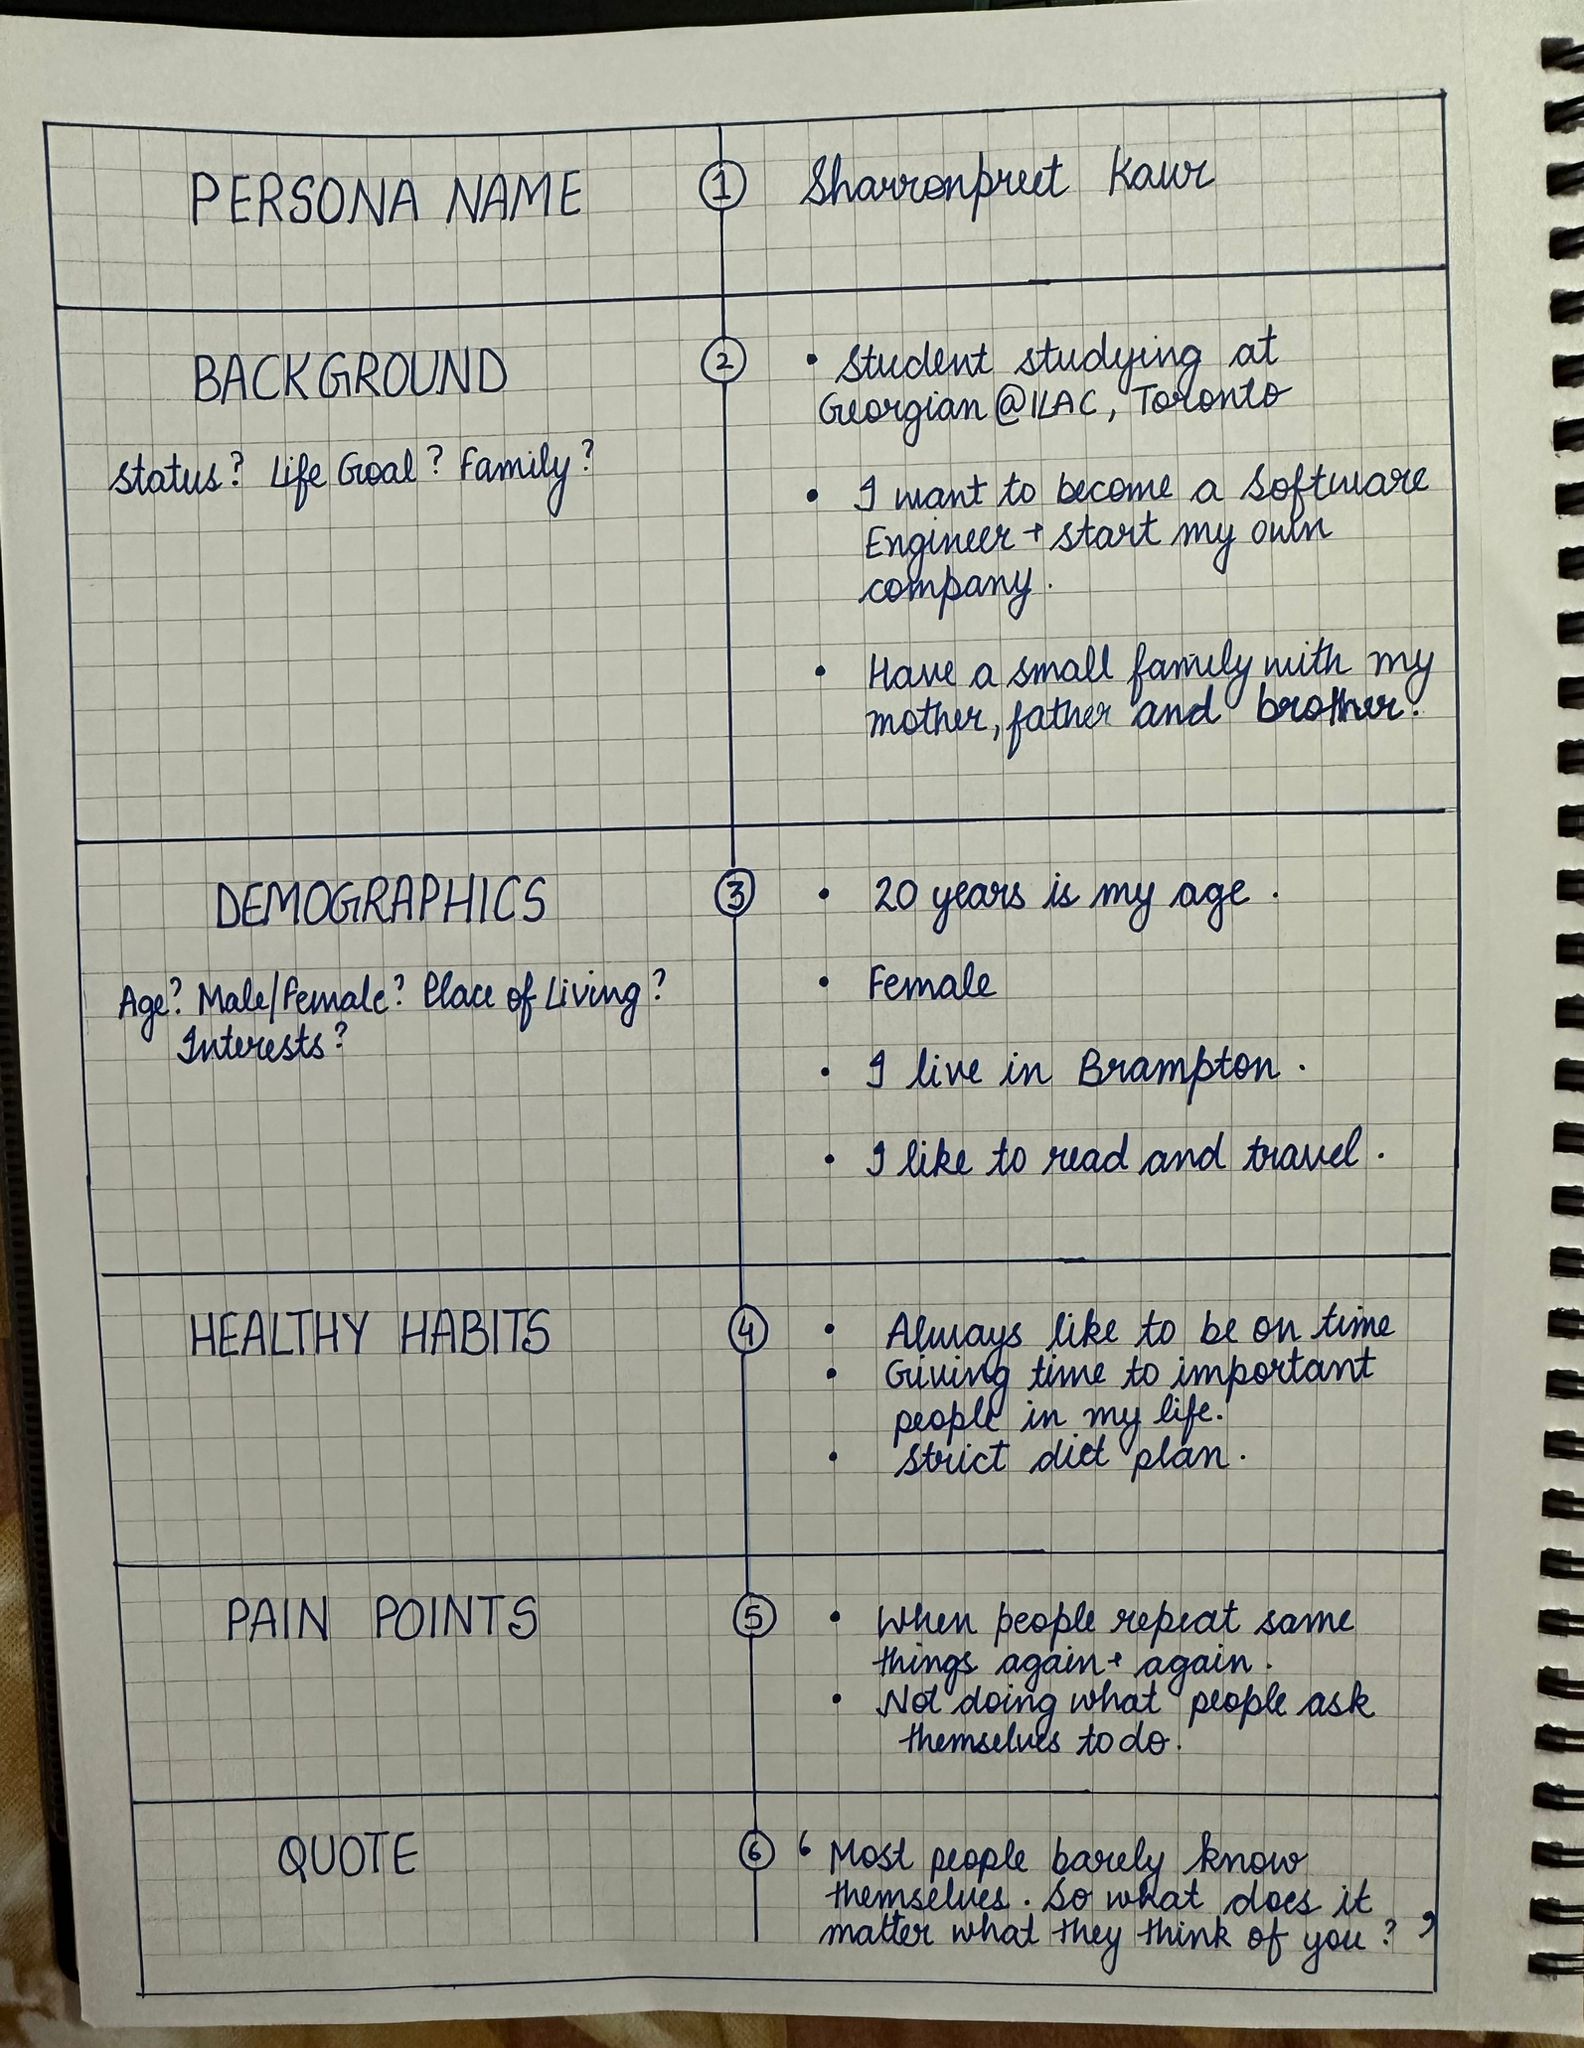 PERSONA NAME
1
Sharronpreet Kaur
BACKGROUND
Status? Life Goal? Family?
2
• Student studying at
Georgian@ILAC, Toronto
• I want to become a Software
Engineer + start my own
company.
• Have a small family with my
mother, father and brother.
DEMOGRAPHICS
Age? Male/Female? Place of Living?
Interests?
3
• 20 years is my age.
• Female
• I live in Brampton.
• I like to read and travel.
HEALTHY HABITS
4
• Always like to be on time
• Giving time to important
people in my life.
• Strict diet plan.
PAIN POINTS
5
• When people repeat same
things again + again.
• Not doing what people ask
themselves to do.
QUOTE
6
‘ Most people barely know
themselves. So what does it
matter what they think of you? ’